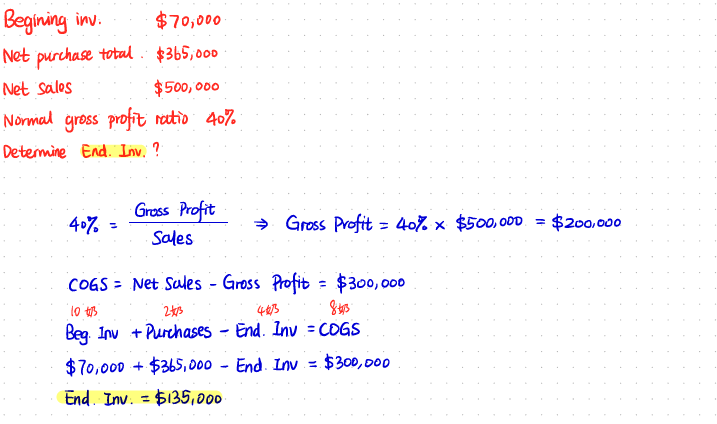 Begining inv. $70,000
Net purchase total. $365,000
Net Sales $500,000
Normal gross profit ratio 40%
Determine End. Inv. ?
40% = Gross Profit / Sales ⇒ Gross Profit = 40% × $500,000 = $200,000
COGS = Net Sales - Gross Profit = $300,000
10 2 4 8
Beg. Inv + Purchases - End. Inv = COGS
$70,000 + $365,000 - End. Inv = $300,000
End. Inv. = $135,000